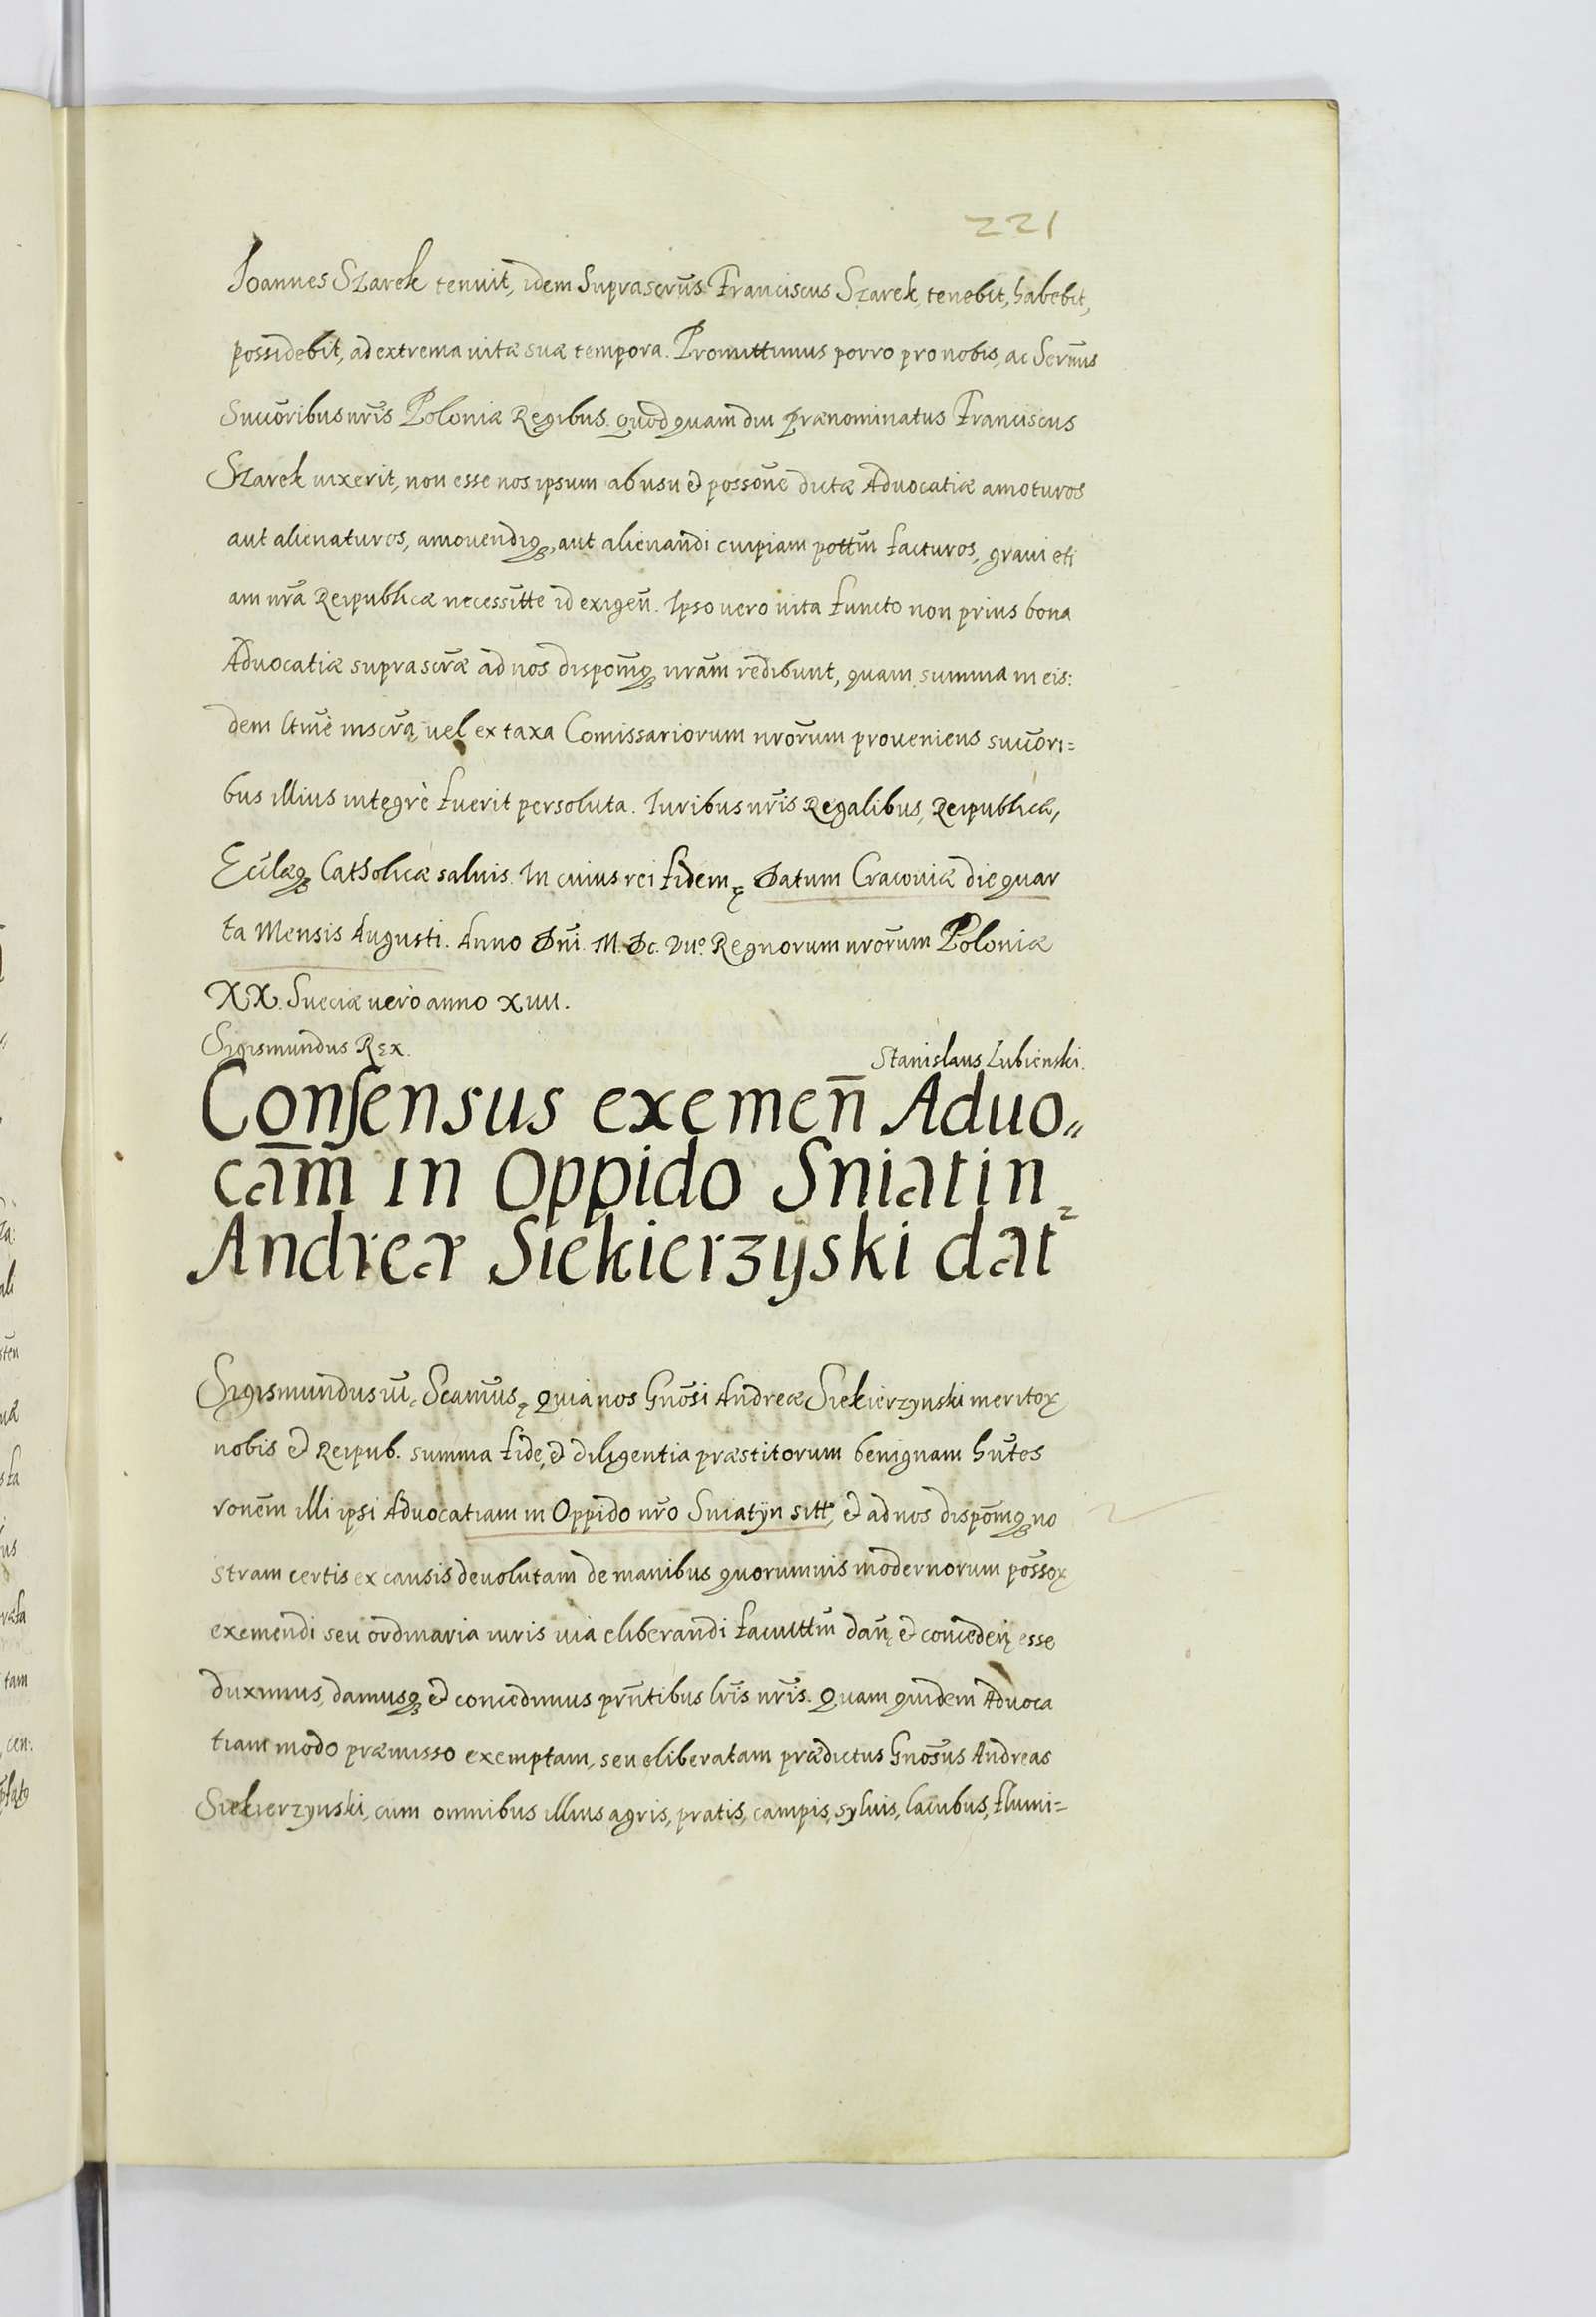 221
Ioannes Szarek tenuit, idem Suprascr̃us Franciscus Szarek, tenebit, habebit,
possidebit, ad extrema uitæ suæ tempora. Promittimus porro pro nobis, ac Serm̃us
Succ̃oribus nr̃is Poloniæ Regibus. Quod quam diu prænominatus Franciscus
Szarek uixerit, non esse nos ipsum ab usu et posson̄e dictæ Aduocatiæ amoturos
aut alienaturos, amouendiq́ꝫ, aut alienandi cuipiam pott̃m facturos, graui eti
am nr̃a Reipublicæ necessitt̃e id exigeñ. Ipso uero uita functo non prius bona
Aduocatiæ suprascr̃æ ad nos dispom̃qꝫ nr̃am redibunt, quam summa in eis:
dem ltm̃e inscr̃a, uel ex taxa Comissariorum nr̃orum proueniens succ̃ori=
bus illius integrè fuerit persoluta. Iuribus nr̃is Regalibus, Reipublicæ,
Eccl̃æqꝫ Catholicæ saluis. In cuius rei fidem ę Datum Cracouiæ die quar
ta Mensis Augusti. Anno Dñi M. Dc. VIIº Regnorum nr̃orum Poloniæ
XX. Sueciæ uero anno XIIII.
Sigismundus Rex.
Stanislaus Lubienski.
Consensus exemen̄ Aduo„
cam̄ in Oppido Sniatin
Andreæ Siekierzÿski dat̄
Sigismundus iii. Scam̃us, Quia nos Gnõsi Andreæ Siekierzynski meritoꝝ
nobis et Reipub. summa fide, et diligentia præstitorum benignam hñtes
ronẽm illi ipsi Aduocatiam in Oppido nr̃o Sniatÿn sitt̃, et ad nos dispõmqꝫ no
stram certis ex causis deuolutam de manibus quorumuis modernorum possoꝝ
exemendi seu ordinaria iuris uia eliberandi facultt̃m dañ, et concedeñ esse
duximus, damusqꝫ et concedimus prñtibus lr̃is nr̃is. Quam quidem Aduoca
tiam modo præmisso exemptam, seu eliberatam prædictus Gnõsus Andreas
Siekierzynski, cum omnibus illius agris, pratis, campis, syluis, lacubus, flumi=